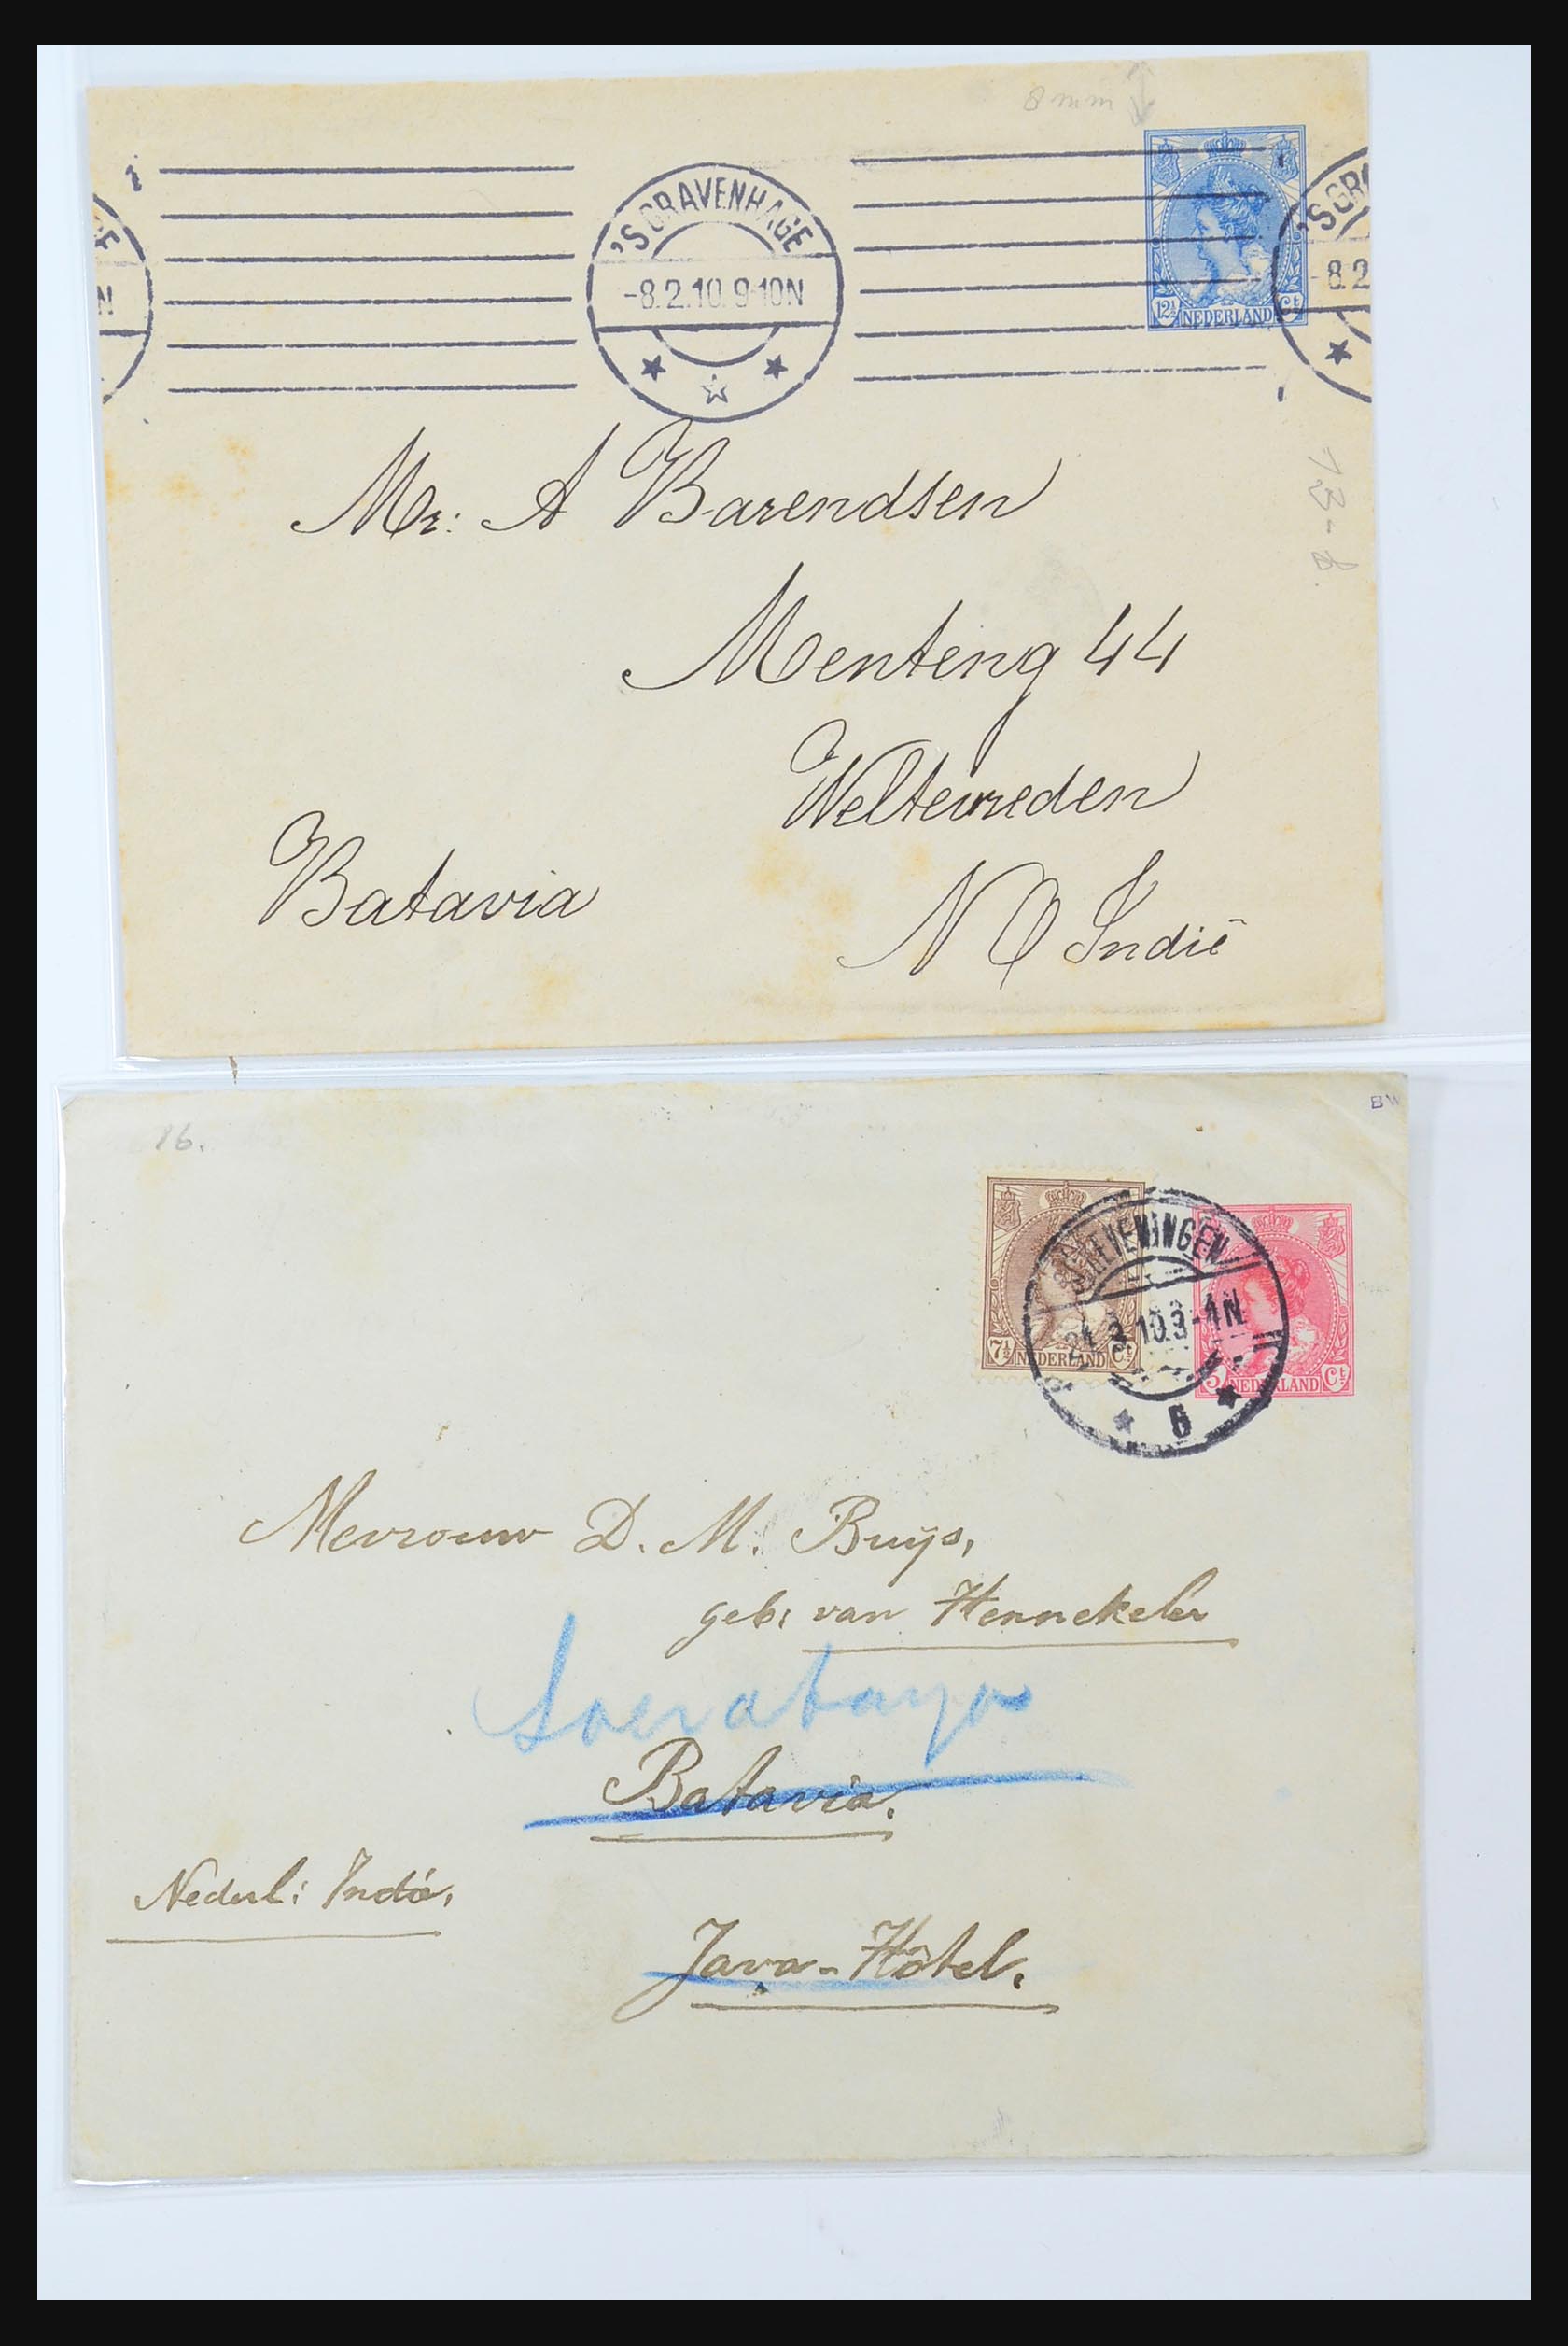 8 mm
'SGRAVENHAGE
-8.2.10.9-10N
12½ NEDERLAND Ct
'SGR
-8.2
Mr: A Barendsen
Menteng 44
Weltevreden
Batavia
N O Indië
16.
BW
7½ NEDERLAND Ct
5 NEDERLAND Ct
SCHEVENINGEN
3-4N
Mevrouw D. M. Buijs,
geb: van Hennekeler
Soerabaya
Batavia.
Nederl: Indië,
Java-Hôtel.